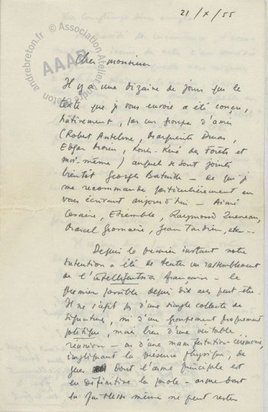 21/X/55
Cher monsieur
Il y a une dizaine de jours que le
texte que je vous envoie a été conçu,
hâtivement, par un groupe d'amis
(Robert Antelme, Marguerite Duras,
Edgar Morin, Louis-René des Forêts et
moi-même) auquel se sont joints
bientôt Georges Bataille – de qui je
me recommande particulièrement en
vous écrivant aujourd'hui – Aimé
Césaire, Etiemble, Raymond Queneau,
Marcel Gromaire, Jean Tardieu, etc..
Depuis le premier instant notre
intention a été de tenter un rassemblement
de l'intelligentsia française – le
premier possible depuis dix ans peut-être.
Il ne s'agit pas d'une simple collecte de
signatures, ni d'un groupement proprement
politique, mais bien d'une véritable
réunion – ou d'une manifestation-cérémonie
impliquant la présence physique, de
gens dont l'arme principale est
en définitive la parole – arme dont
la même ne peut rester
andrebreton.fr
© Association Atelier André Breton
AAAB